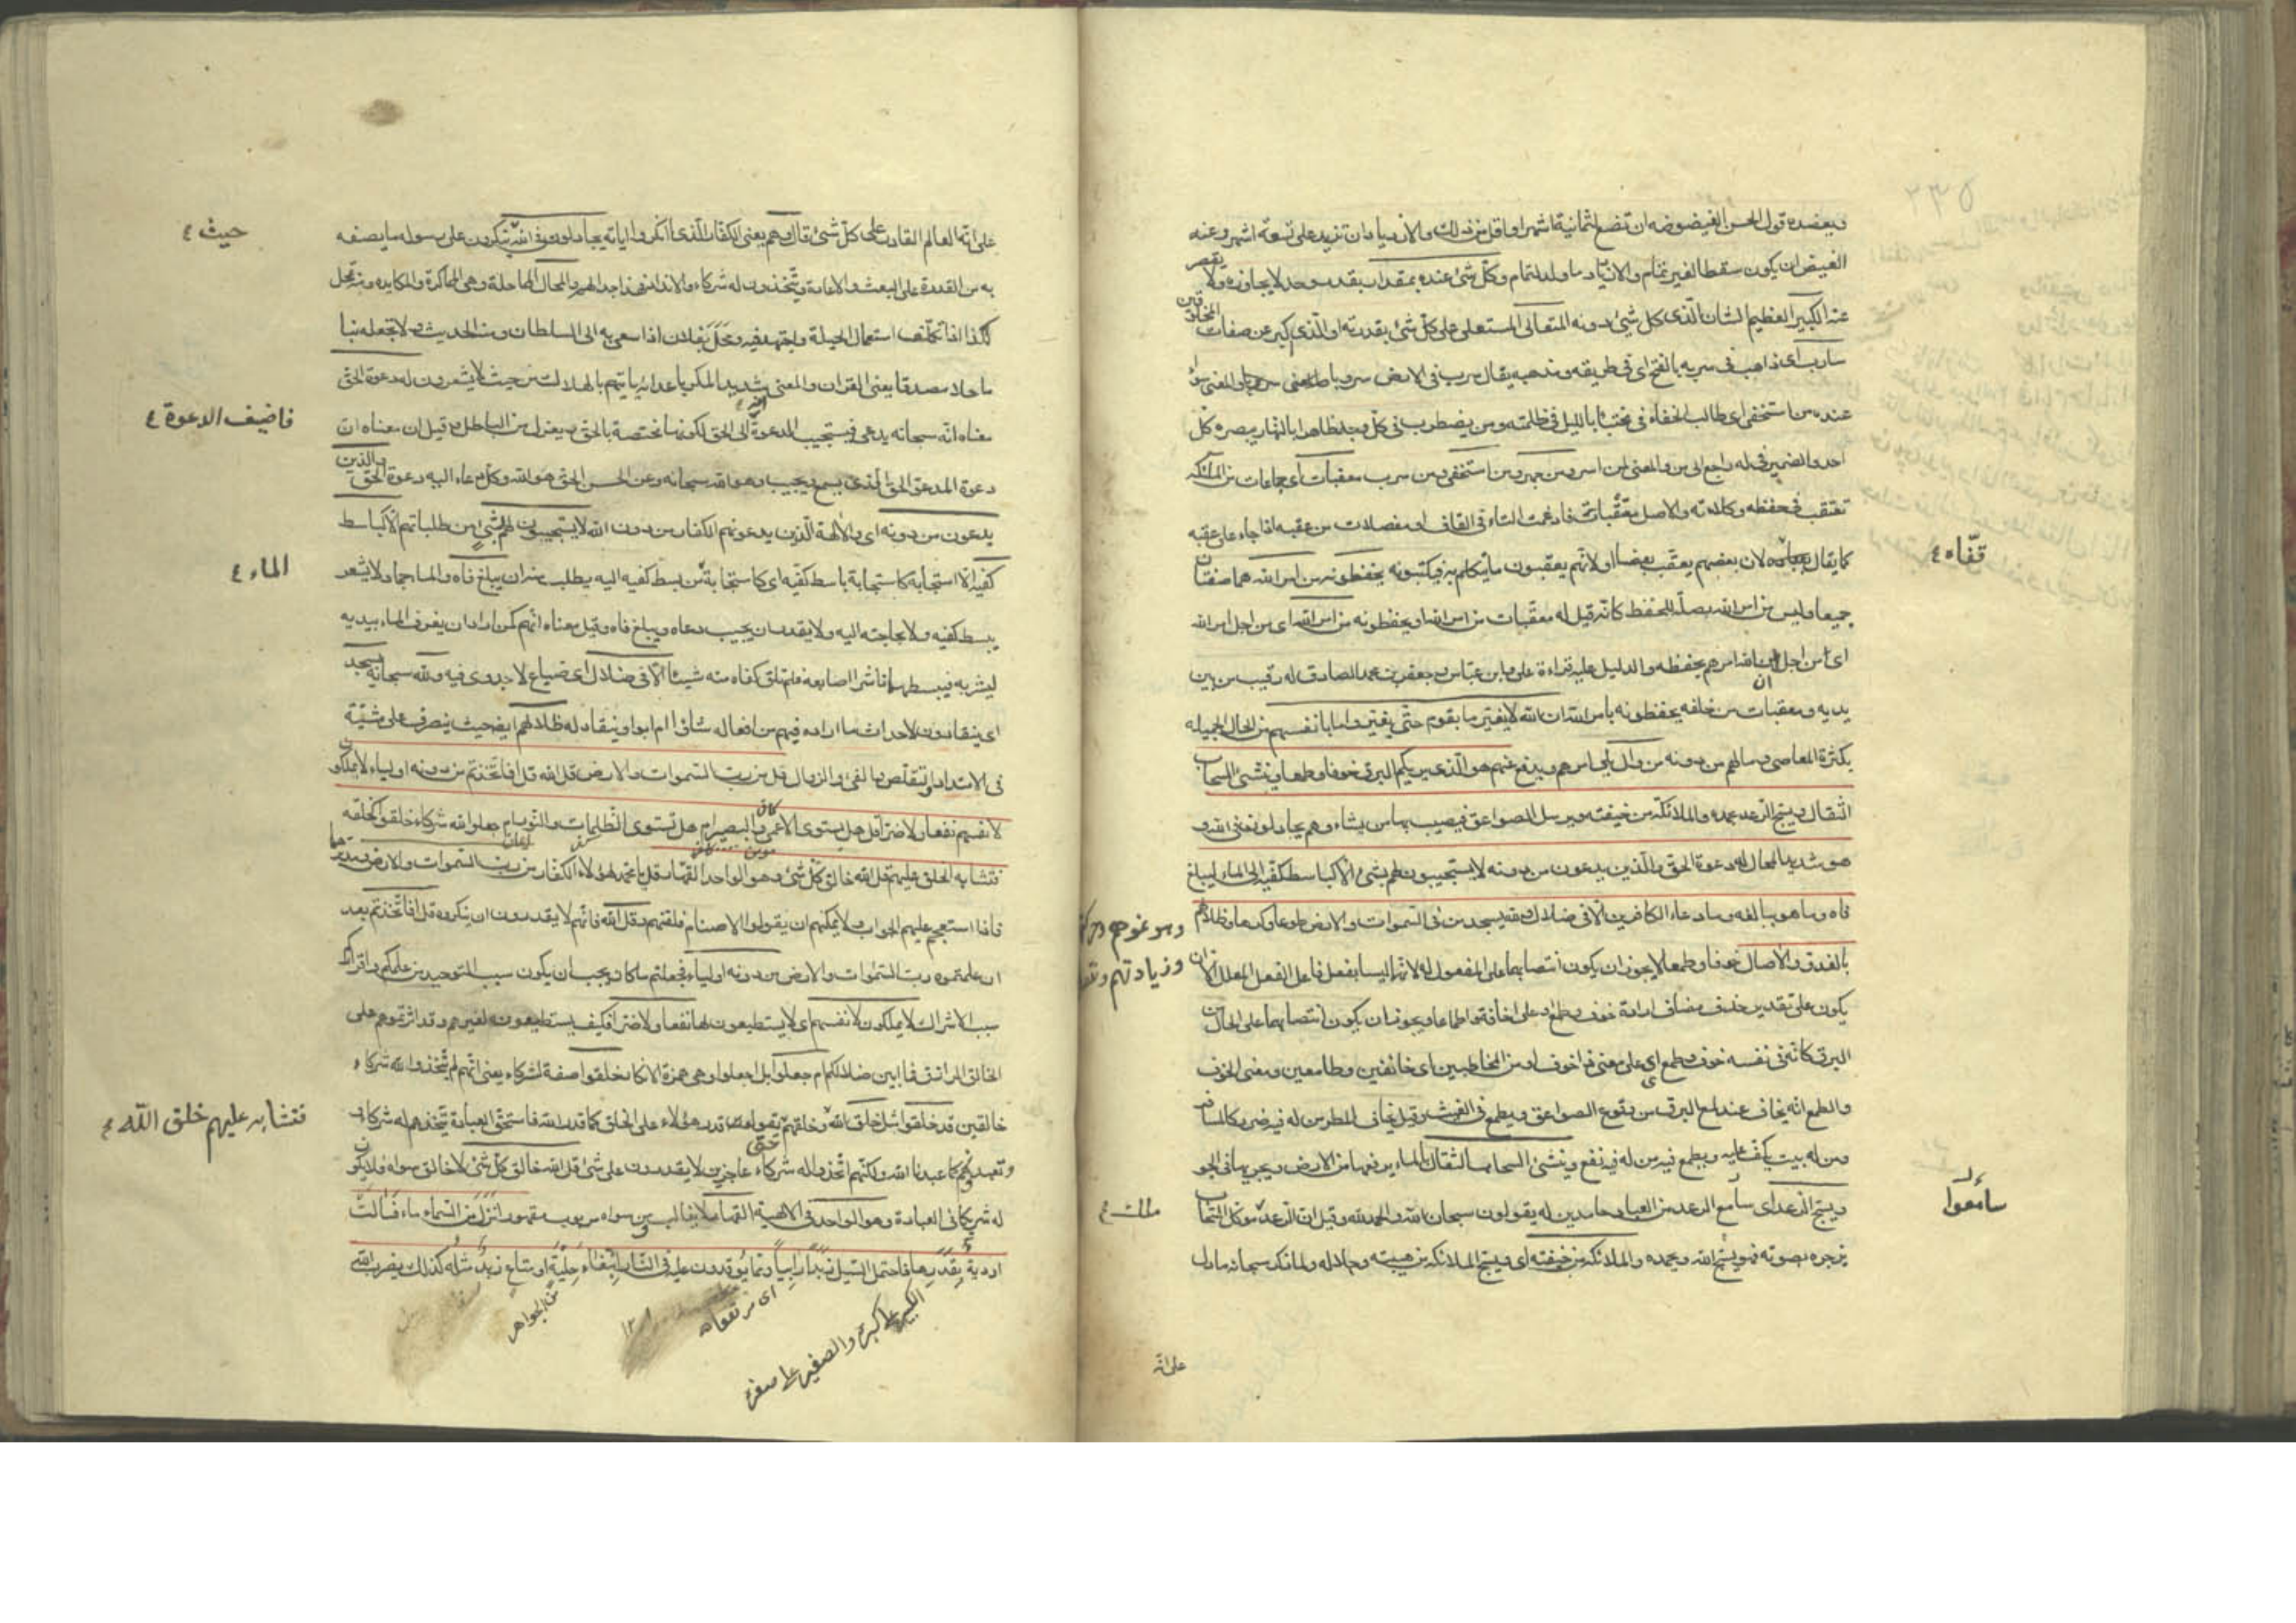 ويعضده قول الحسن الغيضوضه ان تضع لثمانية اشهر او اقل من ذلك والازدياد ان تزيد على تسعة اشهر وعنه
الغيض ان يكون سقطا لغير تمام والازدياد ما ولد لتمام وكل شئ عنده بمقدار بقدر وحد لا يجاوزه ولا يقصر
عنه الكبير العظيم الشان الذى كل شئ دونه المتعالى المستعلى على كل شئ بقدرته او الذى كبر عن صفات المخلوقين
سارب اى ذاهب فى سربه بالفتح اى فى طريقه ومذهبه يقال سرب فى الارض سروبا والمعنى سواء
عنده من استخفى اى طالب الخفاء فى مختبئا بالليل فى ظلمته ومن يضطرب فى كل وجه ظاهرا بالنهار يبصره كل
احد والضمير فى له راجع الى من والمعنى لمن اسر ومن جهر ومن استخفى ومن سرب معقبات اى جماعات من الملائكة
تعتقب فى حفظه وكلاءته والاصل معتقبات فادغمت التاء فى القاف او مفعلات من عقبه اذا جاء على عقبه
كما يقال لان بعضهم يعقب بعضا او لانهم يعقبون ما يتكلم به فيكتبونه يحفظونه من امر الله هما صفتان
جميعا وليس من امر الله بصلة للحفظ كانه قيل له معقبات من امر الله او يحفظونه من امر الله اى من اجل امر الله
اى من اجل ان الله امرهم بحفظه والدليل عليه قراءة على وابن عباس وجعفر بن محمد الصادق له رقيب من بين
يديه ومعقبات من خلفه يحفظونه بامر الله ان الله لا يغير ما بقوم حتى يغيروا ما بانفسهم من الحال الجميله
بكثرة المعاصى وما لهم من دونه من وال يلى امرهم ويدفع عنهم هو الذى يريكم البرق خوفا وطمعا وينشئ السحاب
الثقال ويسبح الرعد بحمده والملائكة من خيفته ويرسل الصواعق فيصيب بها من يشاء وهم يجادلون فى الله و
هو شديد المحال له دعوة الحق والذين يدعون من دونه لا يستجيبون لهم بشئ الا كباسط كفيه الى الماء ليبلغ
فاه وما هو ببالغه وما دعاء الكافرين الا فى ضلال ولله يسجد من فى السموات والارض طوعا وكرها وظلالهم
بالغدو والاصال خوفا وطمعا لا يجوز ان يكون انتصابهما على المفعول له لانهما ليسا بفعل فاعل الفعل المعلل الا ان
يكون على تقدير حذف مضاف ارادة خوف وطمع او على اخافة واطماعا ويجوز ان يكون انتصابهما على الحال من
البرق كانه فى نفسه خوف وطمع اى على معنى ذا خوف او من المخاطبين اى خائفين وطامعين ومعنى الخوف
والطمع انه يخاف عند لمع البرق من وقوع الصواعق ويطمع فى الغيث وقيل يخاف المطر من له فيه ضرر كالمسافر
ومن له بيت يكف عليه ويطمع فيه من له فيه نفع وينشئ السحاب الثقال بالماء يرفعها من الارض ويجريها فى الجو
ويسبح الرعد اى سامع الرعد من العباد حامدين له يقولون سبحان الله والحمد لله وقيل ان الرعد ملك موكل بالسحاب
يزجره بصوته فهو يسبح الله ويحمده والملائكة من خيفته اى ويسبح الملائكة من هيبته وجلاله ولما ذكر سبحانه ما دل
على انه
قفاه ٤
سامعوا
على انه العالم القادر على كل شئ قال وهم يعنى الكفار الذى انكروا اياته يجادلون فى الله ينكرون على رسوله ما يصفه
به من القدرة على البعث والاعادة ويتخذون له شركاء والانداد فهذا جدالهم والمحال المماحلة وهى المماكرة والمكايده ومنه تمحل
لكذا اذا تكلف استعمال الحيلة واجتهد فيه ومحل بفلان اذا سعى به الى السلطان ومنه الحديث ولا تجعله بنا
ماحلا مصدقا يعنى القران والمعنى شديد المكر باعدائه ياتيهم بالهلاك من حيث لا يشعرون له دعوة الحق
معناه انه سبحانه يدعى فيستجيب الدعوة الى الحق لكونها مختصة بالحق وبمعزل من الباطل وقيل ان معناه ان
دعوة المدعو الحق الذى يسمع ويجيب وهو الله سبحانه وعن الحسن الحق هو الله وكل دعاء اليه دعوة الحق والذين
يدعون من دونه اى والالهة الذين يدعونهم الكفار من دون الله لا يستجيبون لهم بشئ من طلباتهم الا كباسط
كفيه الا استجابة كاستجابة باسط كفيه اى كاستجابة من بسط كفيه اليه يطلب منه ان يبلغ فاه والماء جماد لا يشعر
ببسط كفيه ولا بحاجته اليه ولا يقدر ان يجيب دعاه ويبلغ فاه وقيل معناه انهم كمن اراد ان يغرف الماء بيديه
ليشربه فيبسطهما ناشرا اصابعه فلم تلق كفاه منه شيئا الا فى ضلال اى ضياع لا جدوى فيه ولله سبحانه يسجد
اى ينقادون لاحداث ما اراده فيهم من افعاله شاؤا ام ابوا وينقاد له ظلالهم ايضا حيث ينصرف على مشيته
فى الامتداد والتقلص والفئ والزوال قل من رب السموات والارض قل الله قل افاتخذتم من دونه اولياء لا يملكون
لانفسهم نفعا ولا ضرا قل هل يستوى الاعمى والبصير ام هل تستوى الظلمات والنور ام جعلوا لله شركاء خلقوا كخلقه
فتشابه الخلق عليهم قل الله خالق كل شئ وهو الواحد القهار قل يا محمد لهؤلاء الكفار من رب السموات والارض ومدبرهما
فاذا استعجم عليهم الجواب ولا يمكنهم ان يقولوا الاصنام فلقنهم وقل الله فانهم لا يقدرون ان ينكروه قل افاتخذتم بعد
ان علمتموه رب السموات والارض من دونه اولياء فجعلتم ما كان يجب ان يكون سبب التوحيد من علمكم واقراركم
سبب الاشراك لا يملكون لانفسهم اى لا يستطيعون لها نفعا ولا ضرا فكيف يستطيعونه لغيرهم وقد اثرتموهم على
الخالق الرازق فما ابين ضلالكم ام جعلوا بل اجعلوا وهى همزة الانكار خلقوا صفة لشركاء يعنى انهم لم يتخذوا لله شركاء
خالقين قد خلقوا مثل خلق الله وخلقهم حتى يقولوا قدر هؤلاء على الخلق كما قدر الله فاستحقوا العبادة نتخذهم له شركاء
ونعبدهم كما عبدنا الله ولكنهم اتخذوا له شركاء عاجزين لا يقدرون على شئ قل الله خالق كل شئ لا خالق سواه فلا يكون
له شريك فى العبادة وهو الواحد فى الالهية القهار لا يغالب ومن سواه مربوب مقهور انزل من السماء ماء فسالت
اودية بقدرها فاحتمل السيل زبدا رابيا ومما يوقدون عليه فى النار ابتغاء حلية او متاع زبد مثله كذلك يضرب الله
حيث ٤
فاضيف الدعوة ٤
الماء ٤
فتشابه عليهم خلق الله ٤
ملك ٤
اى مرتفعا
من الجواهر
الكبير على كبره والصغير على صغره